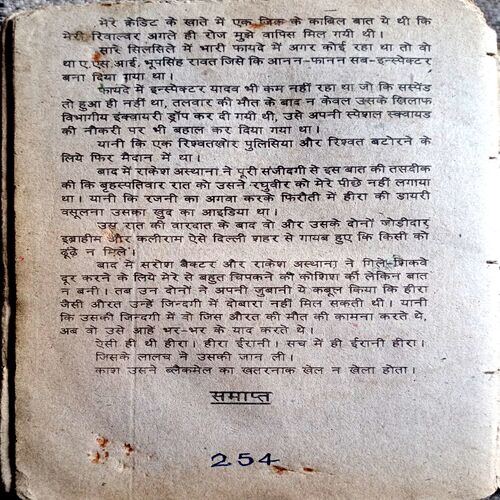 मेरे क्रेडिट के खाते में एक जिक्र के काबिल बात ये थी कि
मेरी रिवाल्वर अगले ही रोज मुझे वापिस मिल गयी थी।
सारे सिलसिले में भारी फायदे में अगर कोई रहा था तो वो
था ए.एस.आई. भूपसिंह रावत जिसे कि आनन-फानन सब-इन्स्पेक्टर
बना दिया गया था।
फायदे में इन्स्पेक्टर यादव भी कम नहीं रहा था जो कि सस्पेंड
तो हुआ ही नहीं था, तलवार की मौत के बाद न केवल उसके खिलाफ
विभागीय इंक्वायरी ड्रॉप कर दी गयी थी, उसे अपनी स्पेशल स्क्वायड
की नौकरी पर भी बहाल कर दिया गया था।
यानी कि एक रिश्वतखोर पुलिसिया और रिश्वत बटोरने के
लिये फिर मैदान में था।
बाद में राकेश अस्थाना ने पूरी संजीदगी से इस बात की तसदीक
की कि बृहस्पतिवार रात को उसने रघुवीर को मेरे पीछे नहीं लगाया
था। यानी कि रजनी का अगवा करके फिरौती में हीरा की डायरी
वसूलना उसका खुद का आइडिया था।
उस रात की वारदात के बाद वो और उसके दोनों जोड़ीदार
इब्राहीम और कलीराम ऐसे दिल्ली शहर से गायब हुए कि किसी को
ढूंढे न मिले।
बाद में सरोश बैक्टर और राकेश अस्थाना ने गिले-शिकवे
दूर करने के लिये मेरे से बहुत चिपकने की कोशिश की लेकिन बात
न बनी। तब उन दोनों ने अपनी जुबानी ये कबूल किया कि हीरा
जैसी औरत उन्हें जिन्दगी में दोबारा नहीं मिल सकती थी। यानी
कि उसकी जिन्दगी में वो जिस औरत की मौत की कामना करते थे,
अब वो उसे आहें भर-भर के याद करते थे।
ऐसी ही थी हीरा। हीरा ईरानी। सच में ही ईरानी हीरा।
जिसके लालच ने उसकी जान ली।
काश उसने ब्लैकमेल का खतरनाक खेल न खेला होता।
समाप्त
254